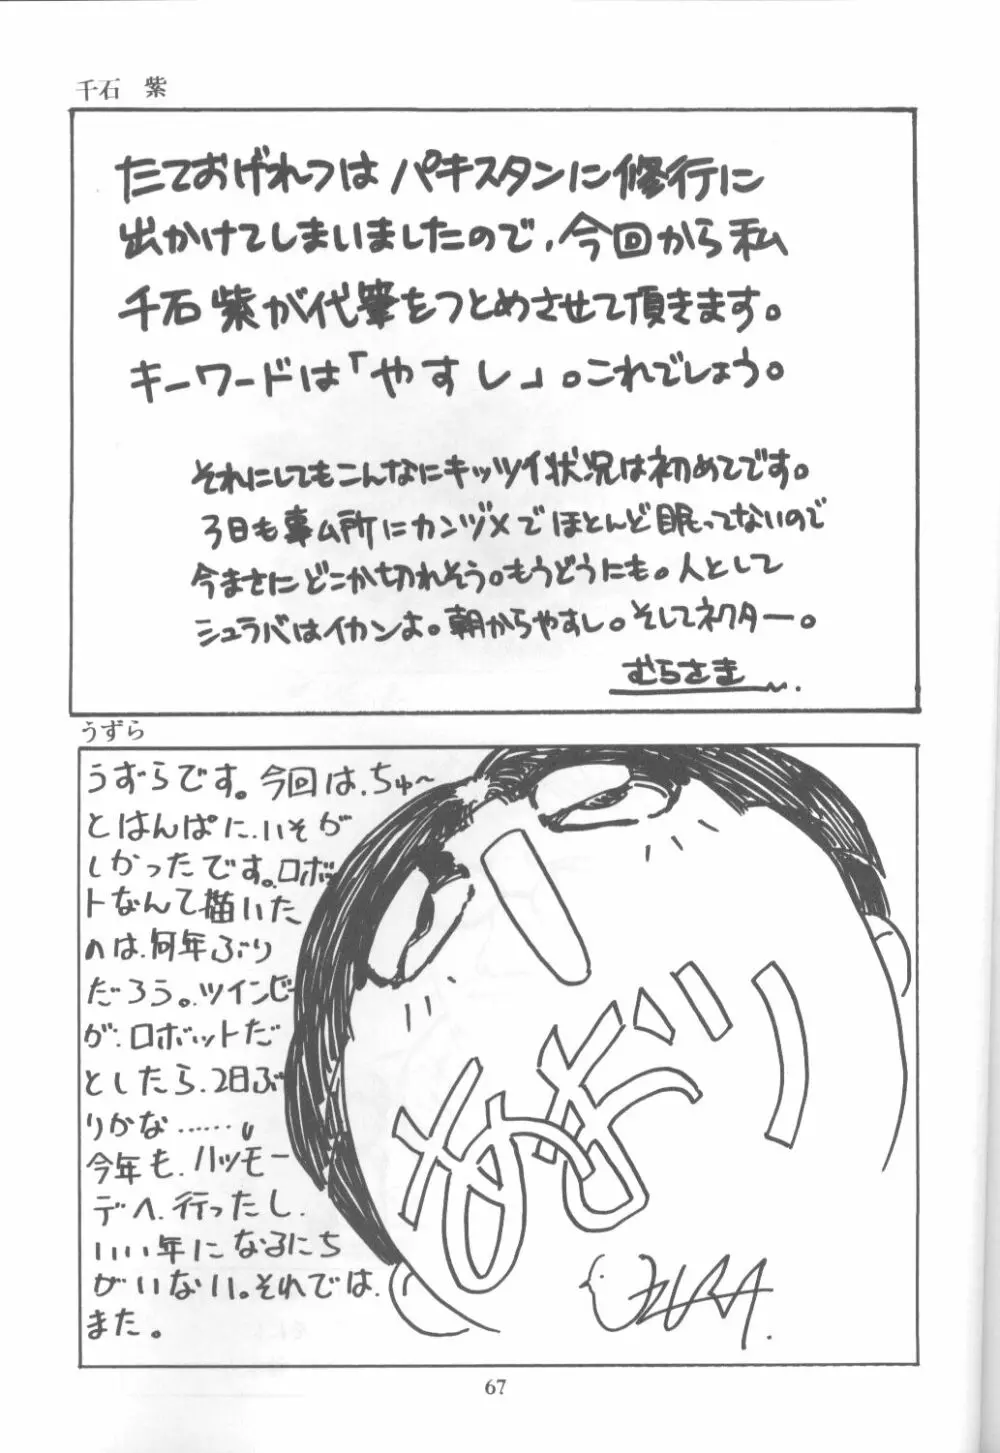 千石　紫
たておげれつはパキスタンに修行に
出かけてしまいましたので、今回から私
千石紫が代筆をつとめさせて頂きます。
キーワードは「やすし」。これでしょう。
それにしてもこんなにキッツイ状況は初めてです。
3日も事ム所にカンヅメでほとんど眠ってないので
今まさにどこか切れそう。もうどうにも。人として
シュラバはイカンよ。朝からやすし。そしてネクター。
むらさき
うずら
うずらです。今回は、ちゅ〜
とはんぱに、いそが
しかったです。ロボッ
トなんて描いた
のは、何年ぶり
だろう。ツインビー
が、ロボットだ
としたら、2日ぶ
りかな……。
今年も、ハツモー
デへ、行ったし、
いい年になるにち
がいない。それでは、
また。
UZURA.
67